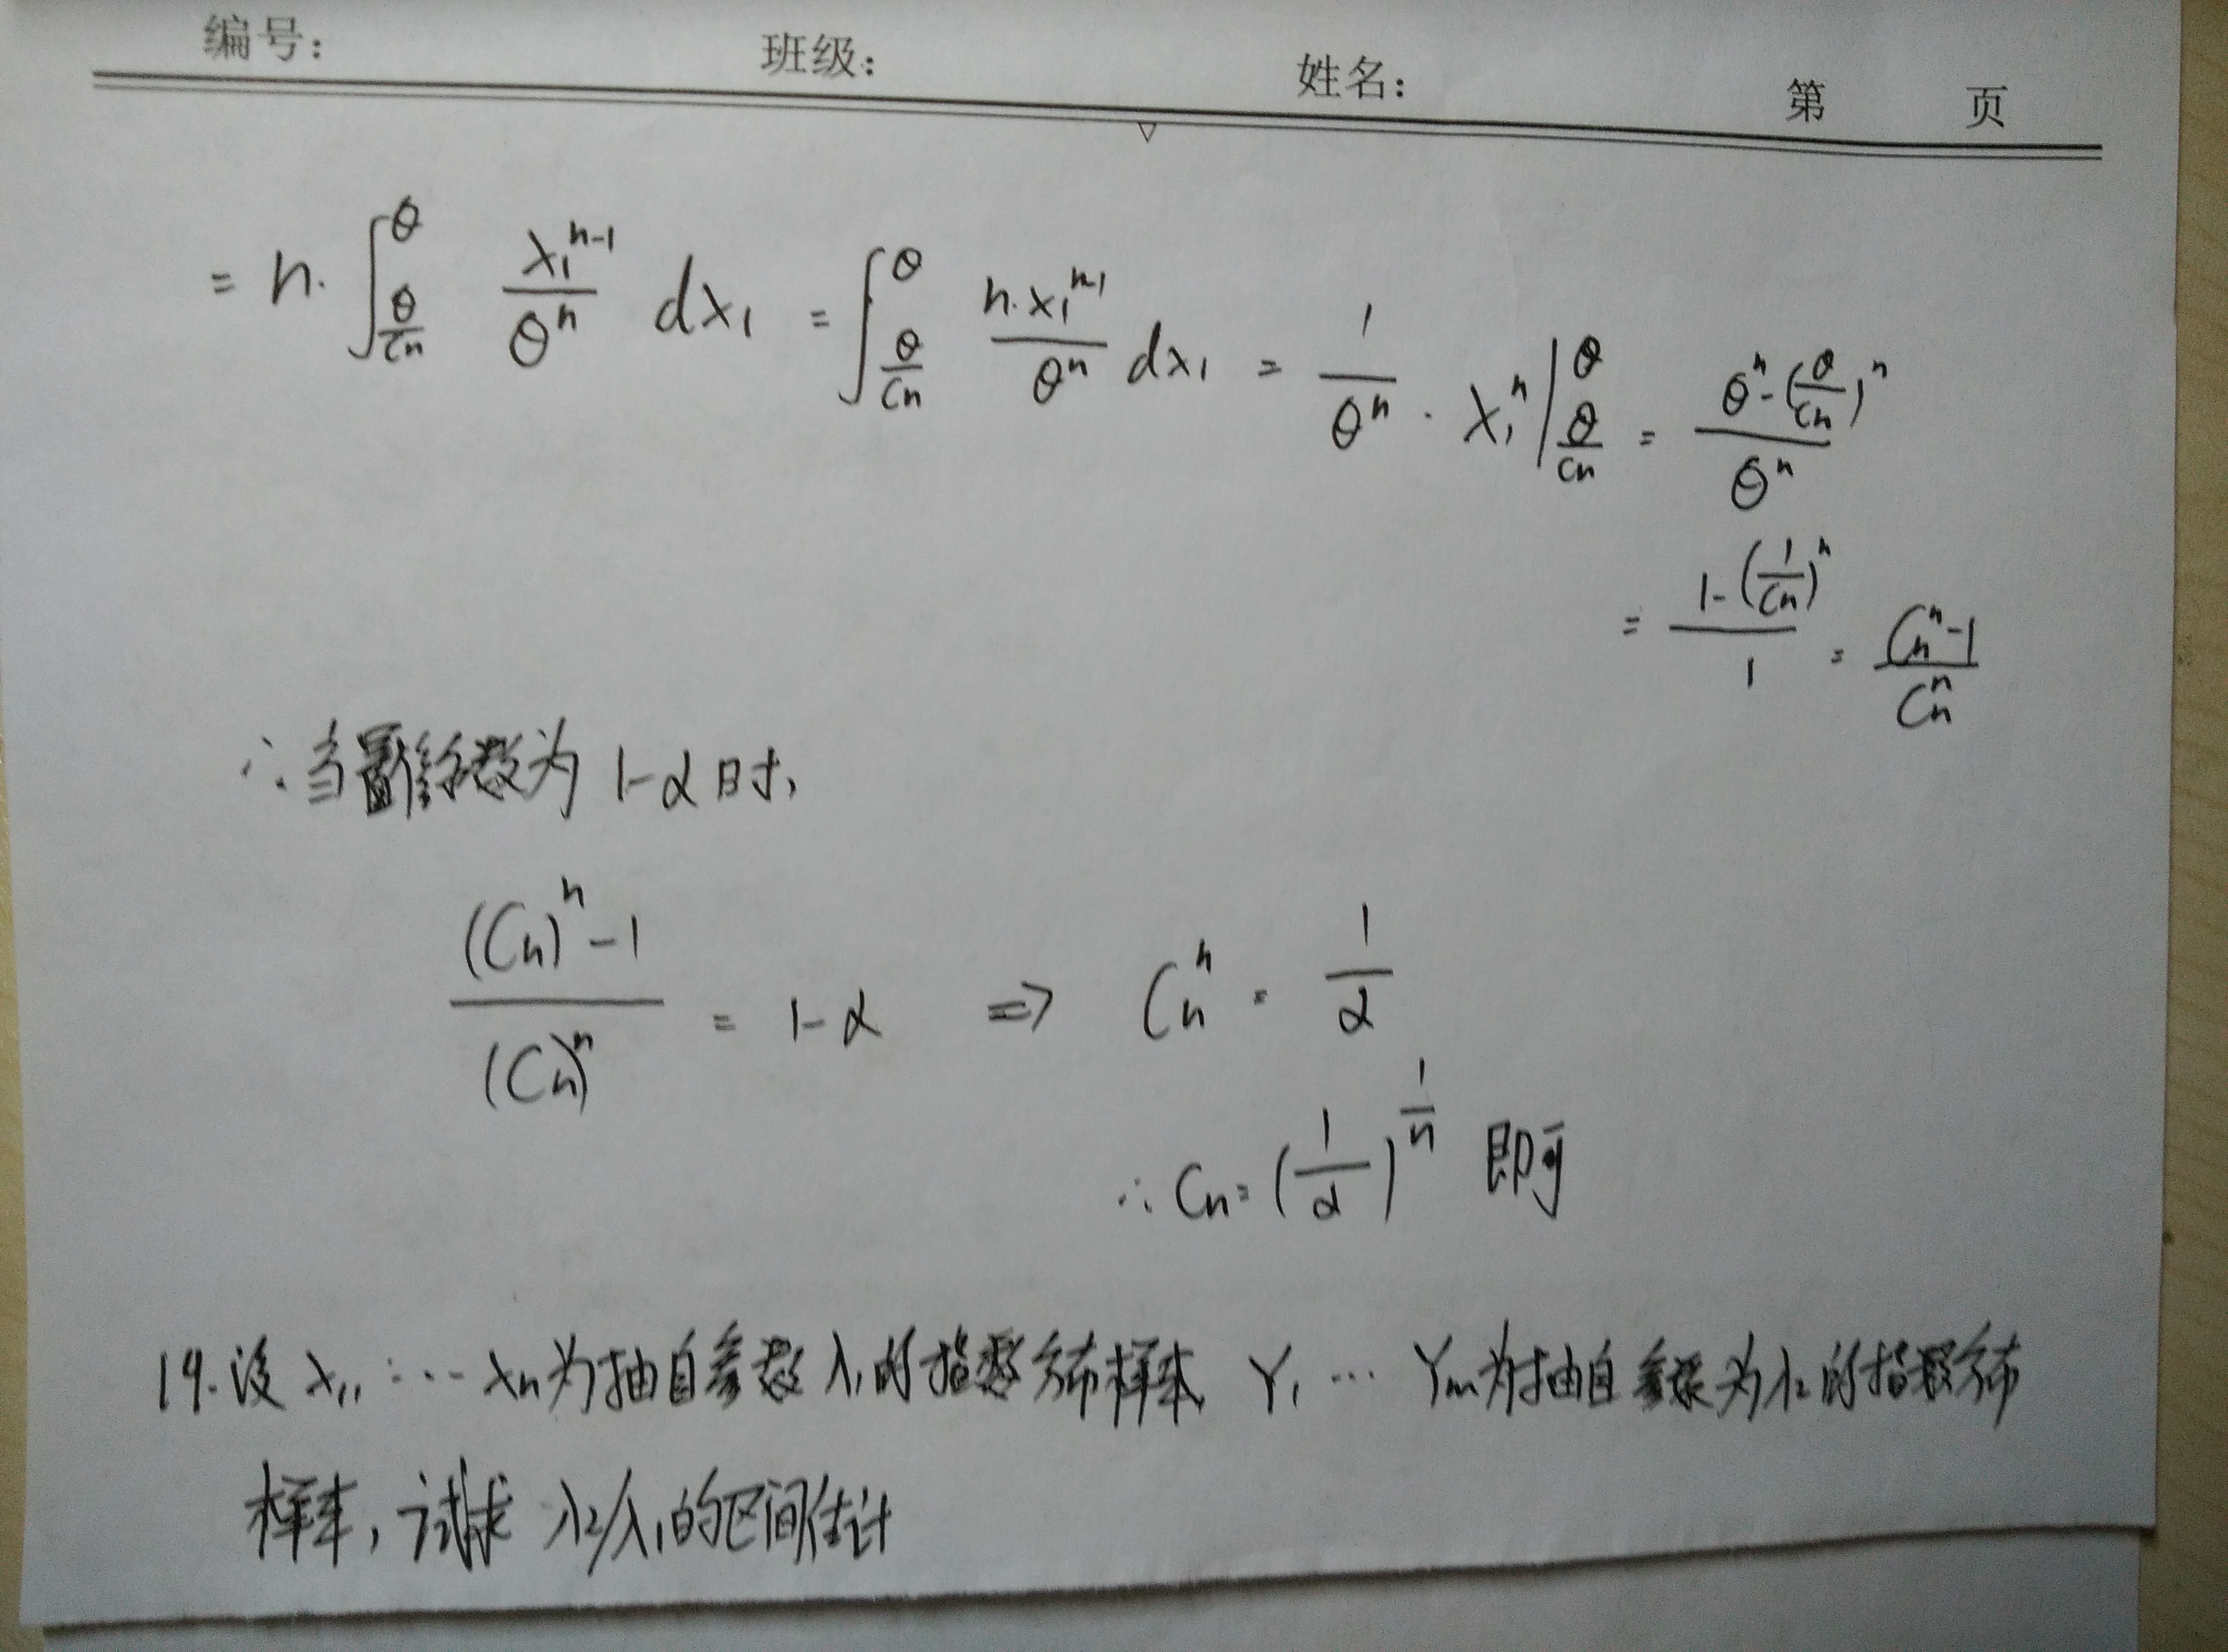 编号： 班级： 姓名： 第 页
= n·∫_{θ/Cn}^{θ} x₁^{n-1}/θ^n dx₁ = ∫_{θ/Cn}^{θ} n·x₁^{n-1}/θ^n dx₁ = 1/θ^n · x₁^n |_{θ/Cn}^{θ} = (θ^n-(θ/Cn)^n)/θ^n
= (1-(1/Cn)^n)/1 = (Cn^n-1)/Cn^n
∴当置信系数为 1-α时,
((Cn)^n-1)/(Cn)^n = 1-α ⇒ Cn^n = 1/α
∴ Cn = (1/α)^{1/n} 即可
19.设 x₁, … xn为抽自参数λ₁的指数分布样本, Y₁ … Ym为抽自参数为λ₂的指数分布
样本, 试求 λ₂/λ₁的区间估计